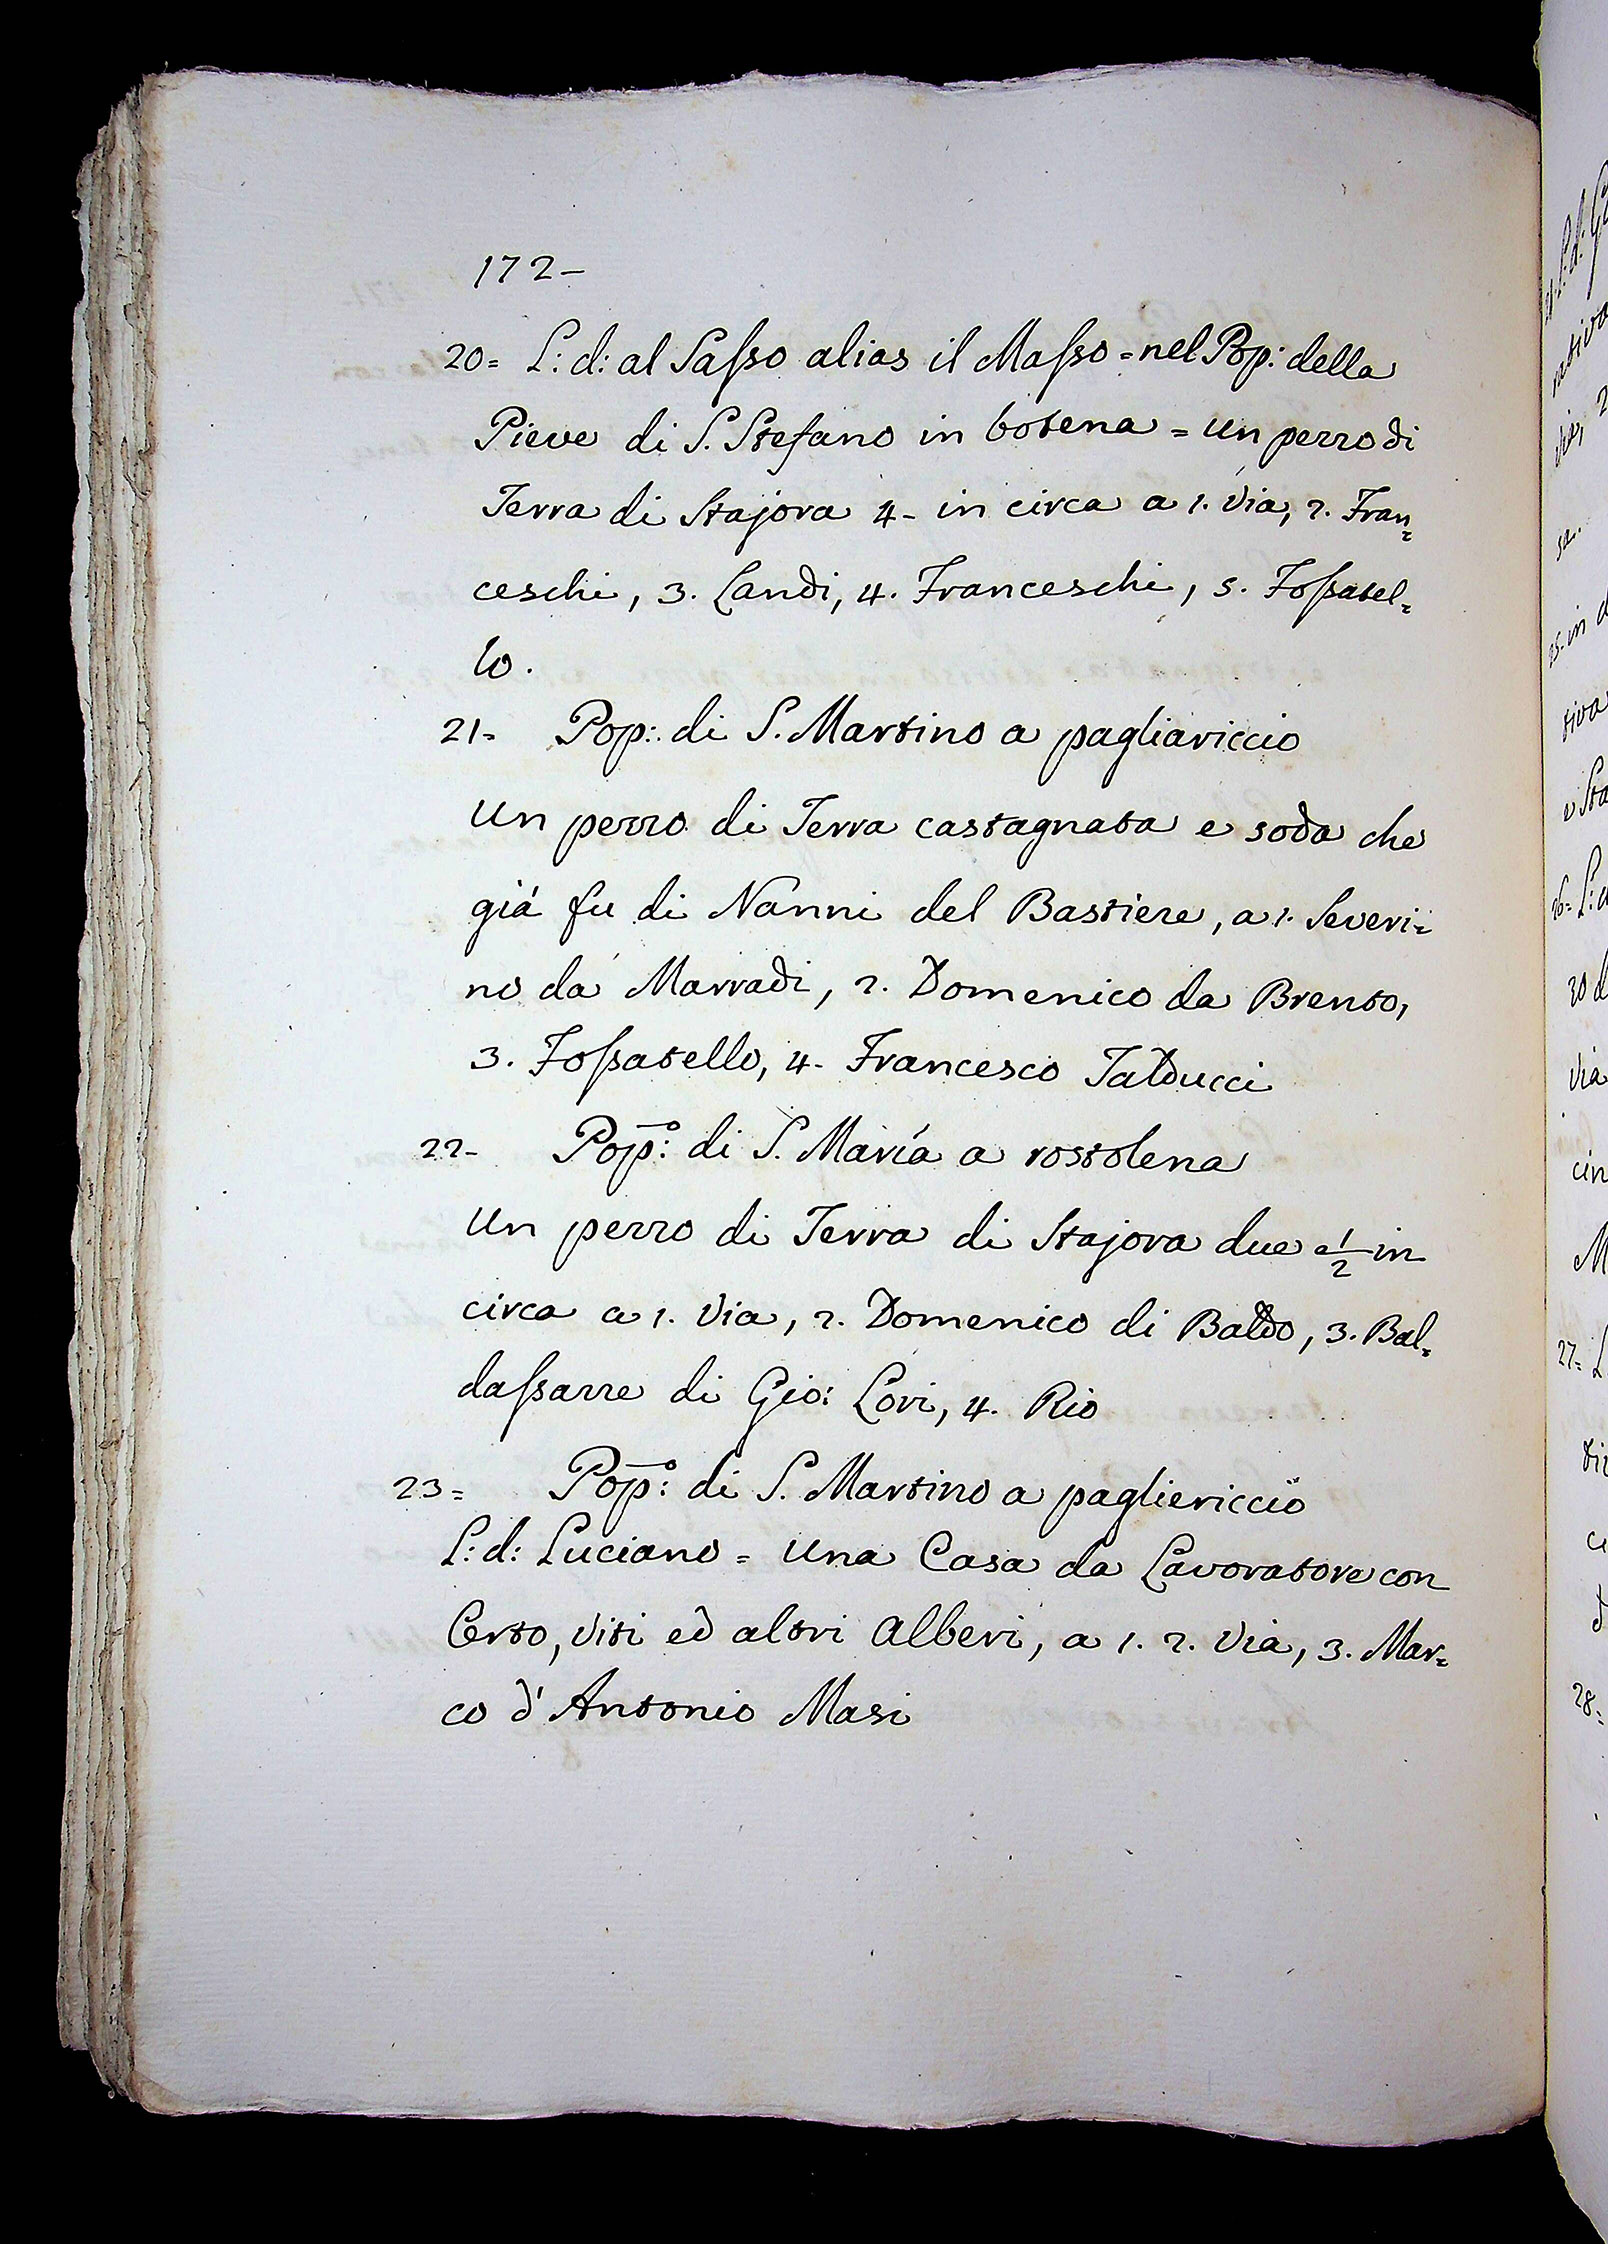 172-
20= L: d: al Sasso alias il Masso = nel Pop: della
Pieve di S. Stefano in botena = un pezzo di
Terra di Stajora 4- in circa a 1. via, 2. Fran=
ceschi, 3. Landi, 4. Franceschi, 5. Fossatel=
lo.
21- Pop: di S. Martino a pagliariccio
Un pezzo di Terra castagnata e soda che
già fu di Nanni del Bastiere, a 1. Severi=
no da Marradi, 2. Domenico da Brento,
3. Fossatello, 4. Francesco Talducci
22- Popº: di S. Maria a rostolena
Un pezzo di Terra di Stajora due e 1/2 in
circa a 1. Via, 2. Domenico di Baldo, 3. Bal=
dassarre di Gio: Lori, 4. Rio
23= Popº: di S. Martino a pagliericcio
L: d: Luciano = Una Casa da Lavoratore con
Orto, viti ed altri Alberi, a 1. 2. Via, 3. Mar=
co d'Antonio Masi